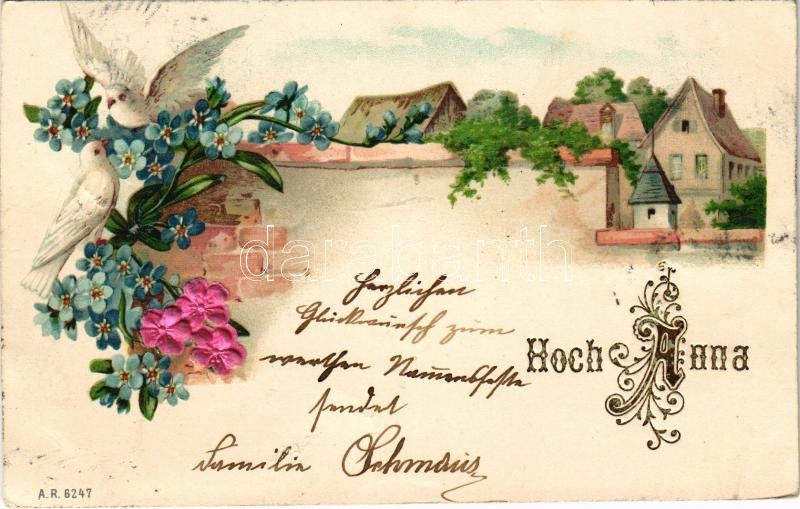 darabanth
Herzlichen
Glückwunsch zum
werthen Namensfeste
sendet
Familie Schmaus
Hoch Anna
A.R. 6247